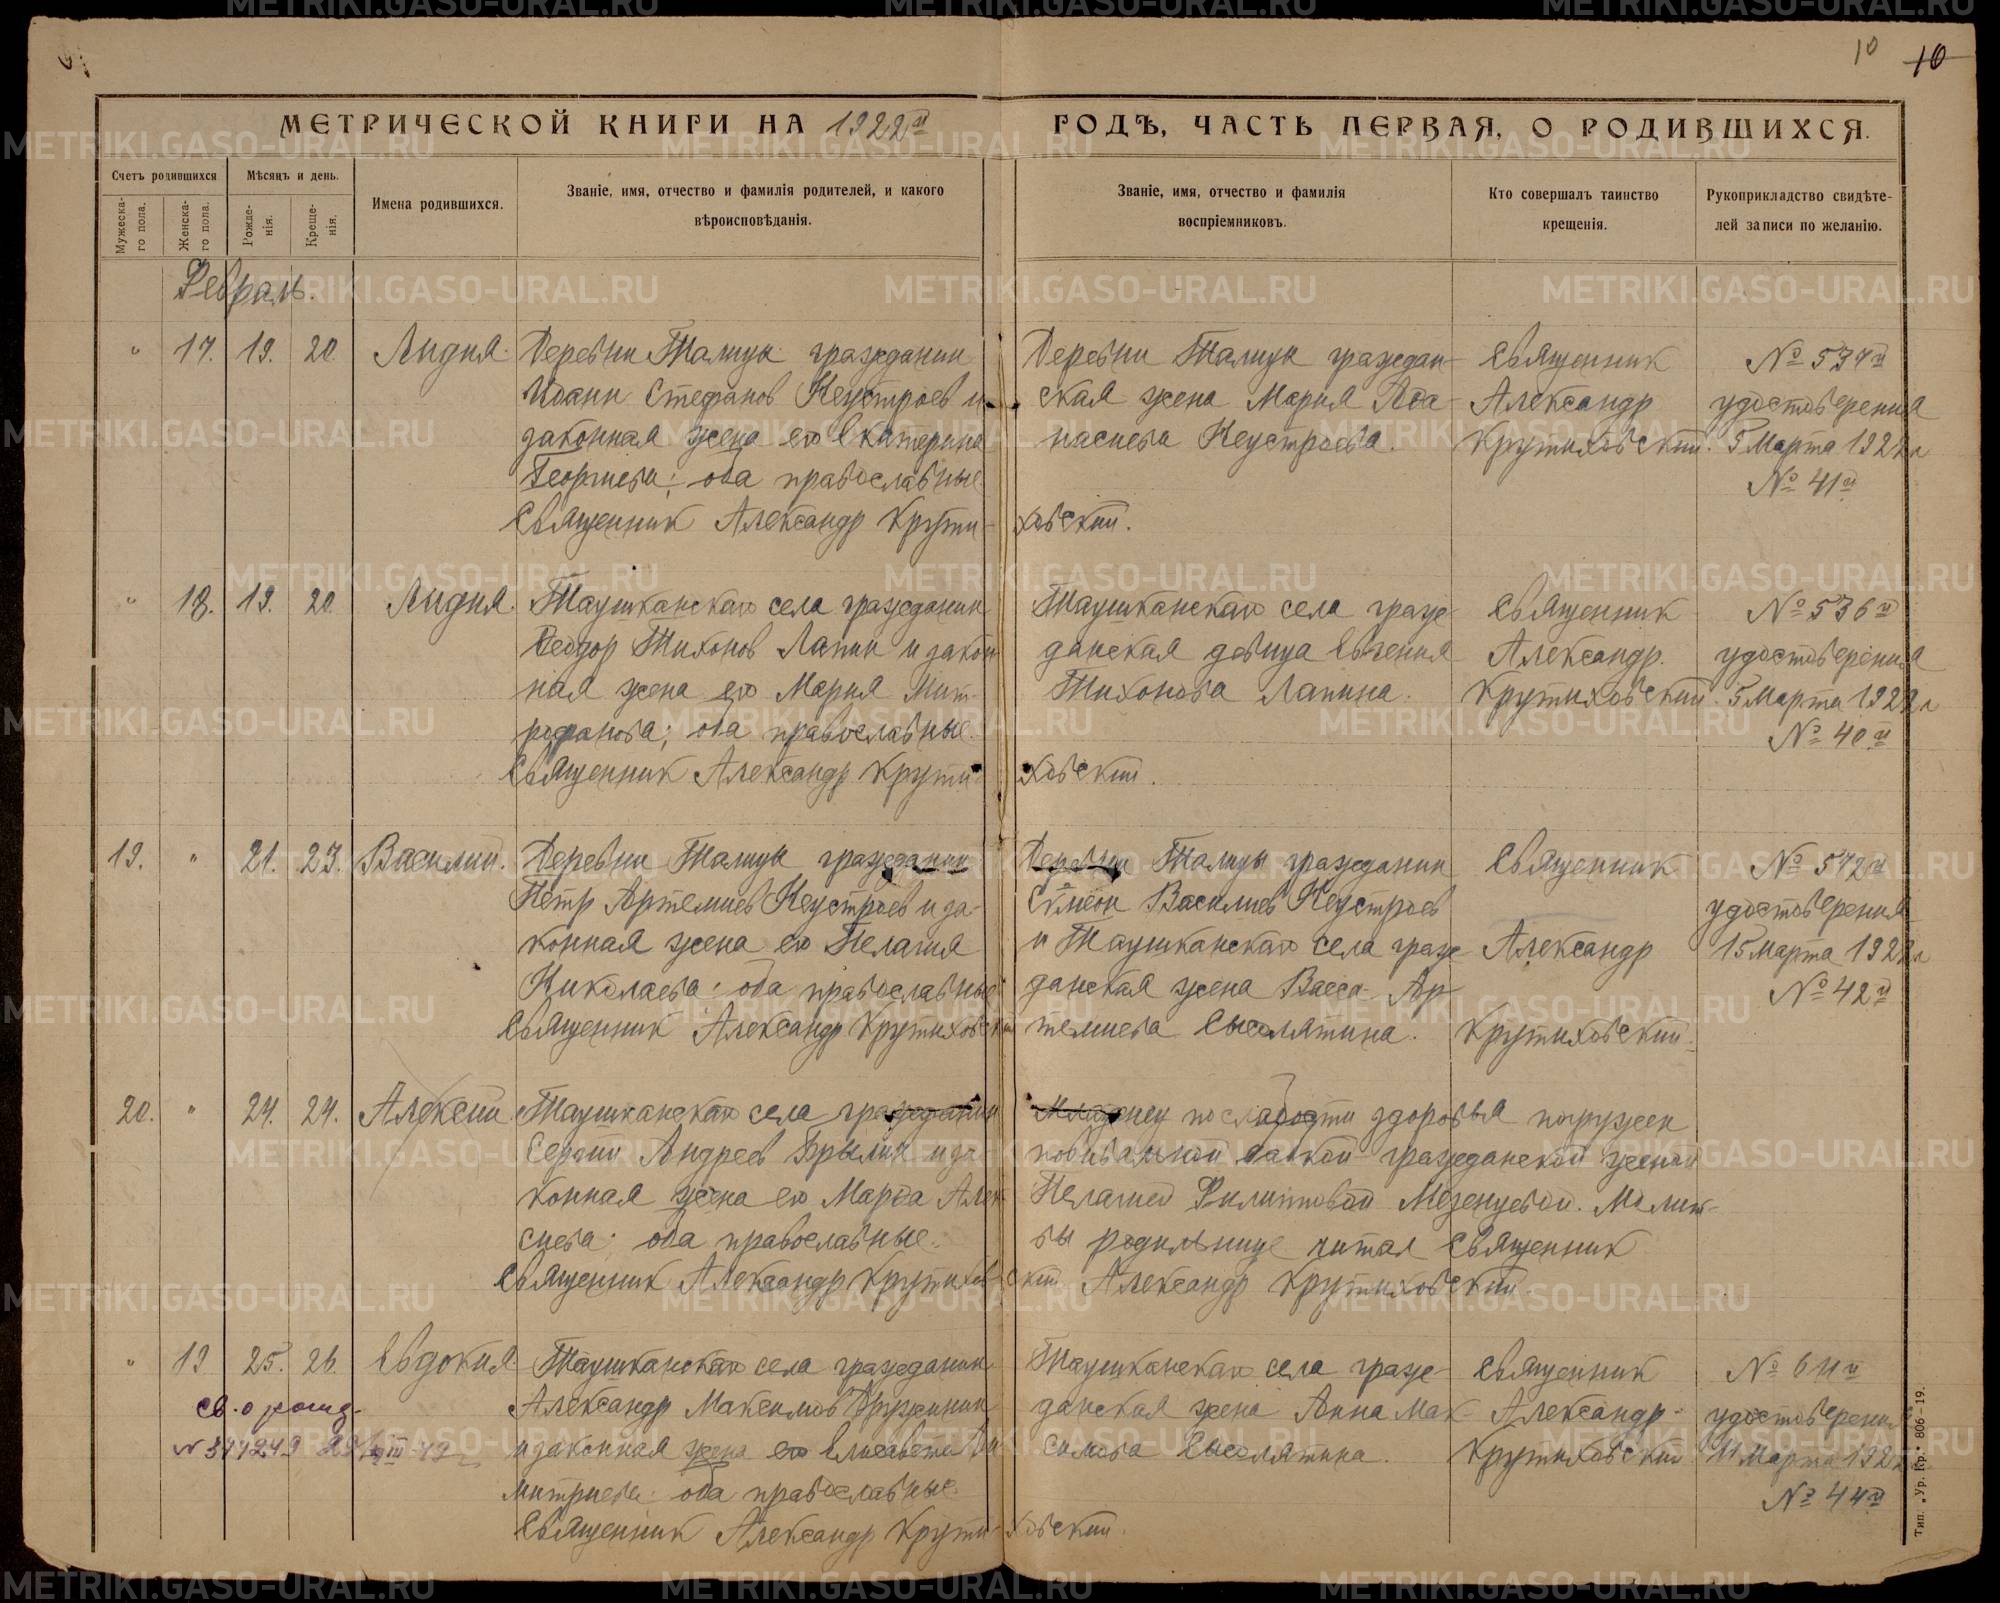 10 10
МЕТРИЧЕСКОЙ КНИГИ НА 1922й ГОДЪ, ЧАСТЬ ПЕРВАЯ, О РОДИВШИХСЯ.
Счетъ родившихся
Мужеска-го пола.
Женска-го пола.
Мѣсяцъ и день.
Рожде-нія.
Креще-нія.
Имена родившихся.
Званіе, имя, отчество и фамилія родителей, и какого
вѣроисповѣданія.
Званіе, имя, отчество и фамилія
воспріемниковъ.
Кто совершалъ таинство
крещенія.
Рукоприкладство свидѣте-
лей записи по желанію.
Февраль.
" 17. 19. 20. Лидия.
Деревни Талицы гражданин
Иоанн Стефанов Неустроев и
законная жена его Екатерина
Георгиева; оба православные
Священник Александр Крути-
ховский.
Деревни Талицы граждан-
ская жена Мария Афа-
насиева Неустроева.
Священник
Александр
Крутиховский.
№ 537й
удостоверения
5 Марта 1922 г
№ 41й
" 18. 19. 20. Лидия.
Таушканскаго села гражданин
Феодор Тихонов Лапин и закон
ная жена его Мария Мит-
рофанова; оба православные.
Священник Александр Крути-
ховский.
Таушканскаго села граж-
данская девица Евгения
Тихонова Лапина.
Священник
Александр.
Крутиховский.
№ 536й
удостоверения
5 Марта 1922 г
№ 40й
19. " 21. 23. Василий.
Деревни Талицы гражданин
Петр Артемиев Неустроев и за-
конная жена его Пелагия
Николаева; оба православные
Священник Александр Крутиховски
Деревни Талицы гражданин
Симеон Василиев Неустроев
и Таушканскаго села граж-
данская жена Васса Ар-
темиева Сысолятина.
Священник
Александр
Крутиховский.
№ 572й
удостоверения
15 марта 1922 г
№ 42й
20. " 24. 24. Алексий
Таушканскаго села гражданин
Сергий Андреев Брылин и за-
конная жена его Марфа Алек
сиева; оба православные.
Священник Александр Крутихов-
ский
Младенец по слабости здоровья погружен
повивальной бабкой гражданской женой
Пелагией Филипповой Мезенцевой. Молит-
вы родильнице читал Священник
Александр Крутиховский.
" 19 25. 26. Евдокия.
Таушканскаго села гражданин
Александр Максимов Дружинин
и законная жена его Елисавета Ди
митриева; оба православные.
Священник Александр Крути-
ховский.
Таушканскаго села граж-
данская жена Анна Мак-
симова Сысолятина.
Священник
Александр
Крутиховский
№ 611й
удостоверения
11 Марта 1922
№ 44й
св. о рожд.
Тип. „Ур. Кр.“ 806—19.
METRIKI.GASO-URAL.RU